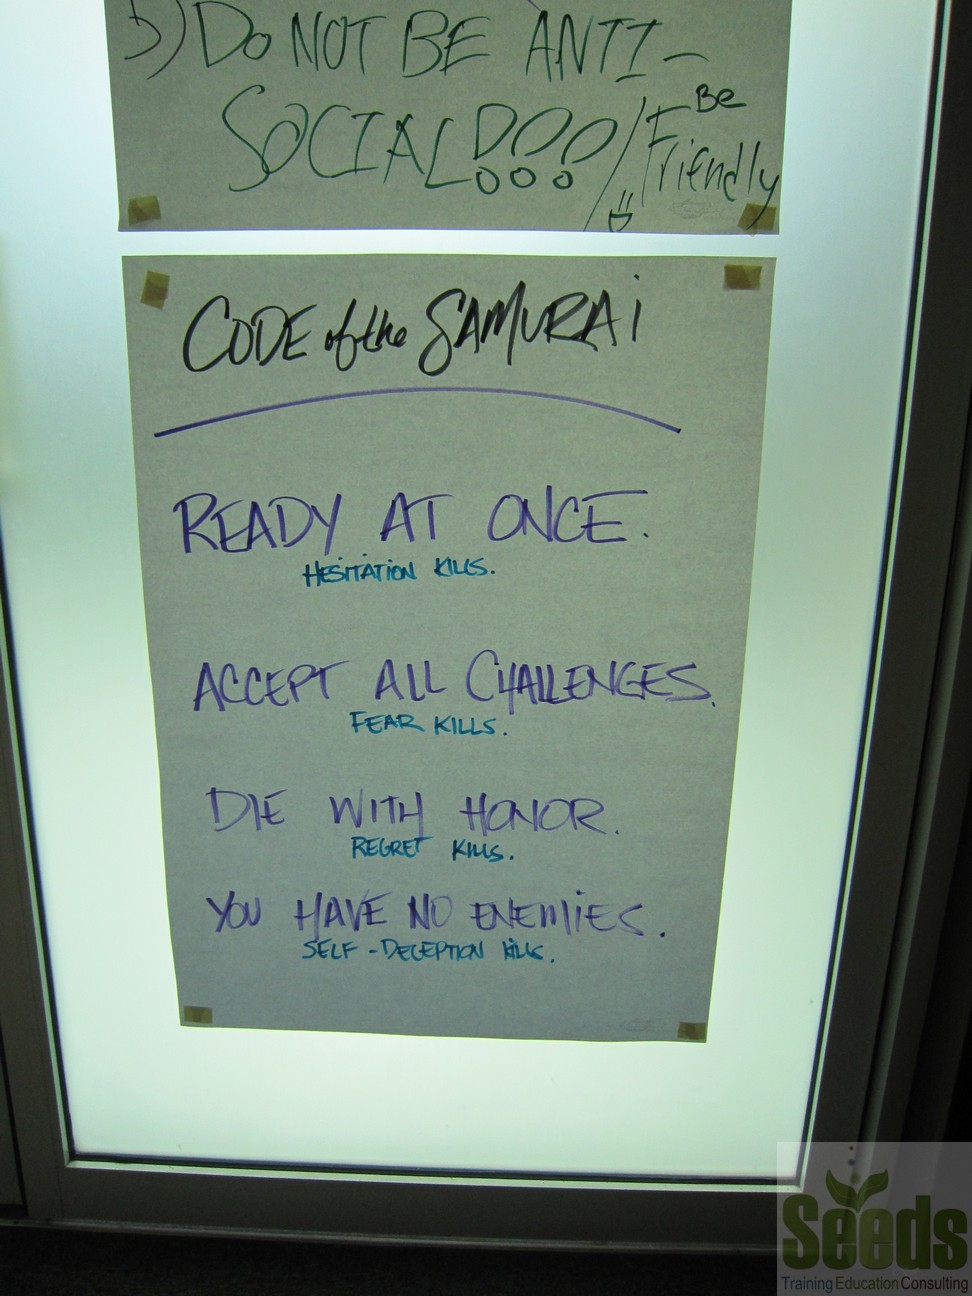 5) DO NOT BE ANTI-
SOCIAL!!!/Be Friendly
CODE of the SAMURAI
READY AT ONCE.
HESITATION KILLS.
ACCEPT ALL CHALLENGES.
FEAR KILLS.
DIE WITH HONOR.
REGRET KILLS.
YOU HAVE NO ENEMIES.
SELF-DECEPTION KILLS.
Seeds
Training Education Consulting